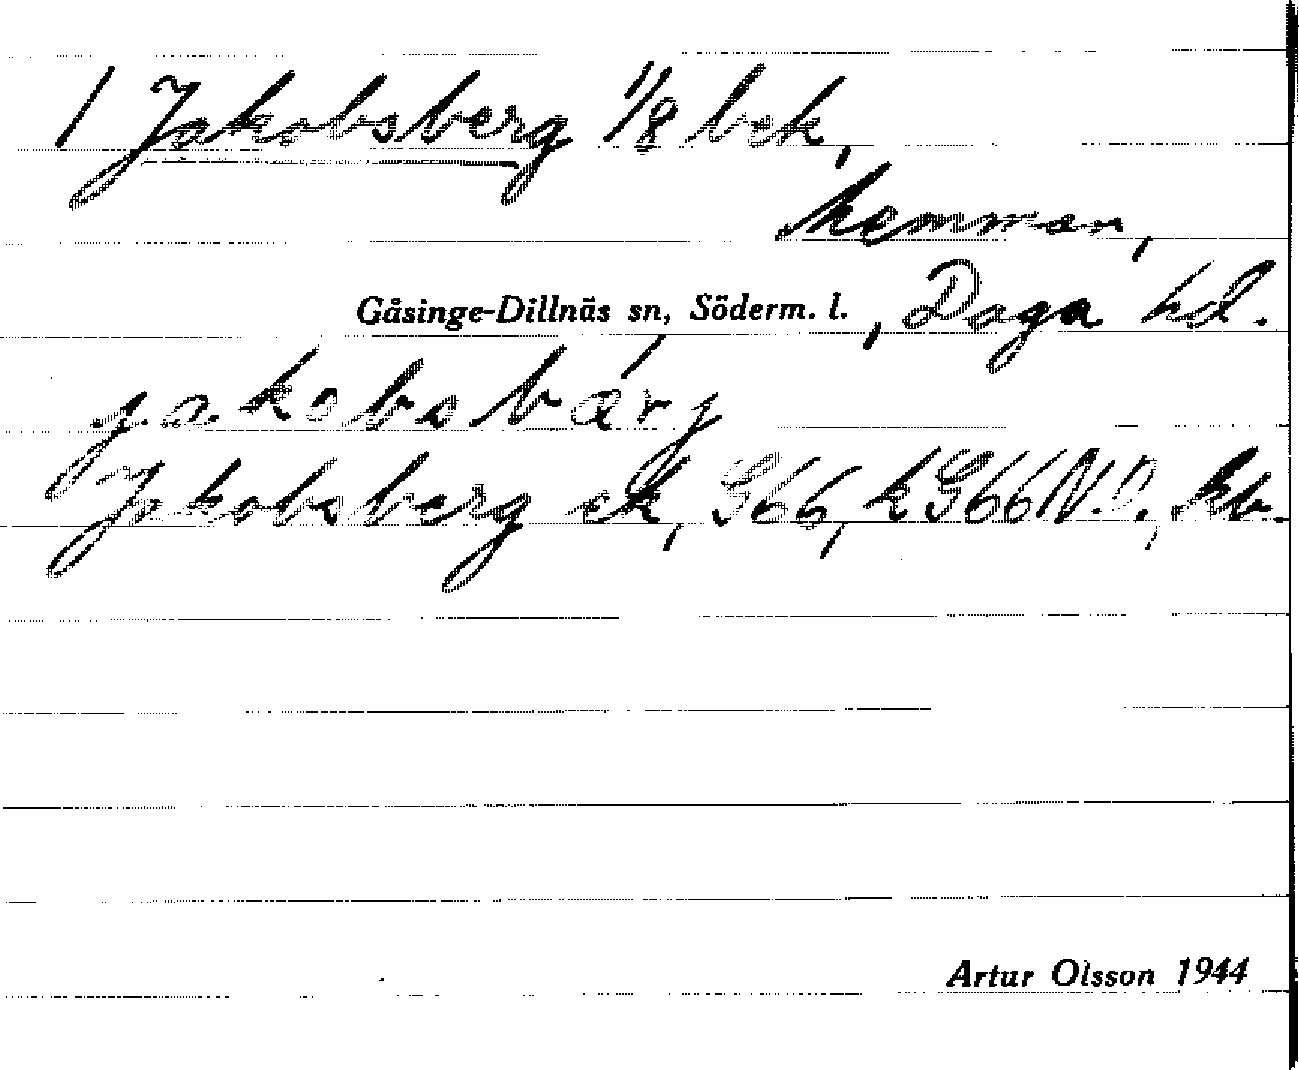 1 Jakobsberg 1/8 bek,
hemman,
Gåsinge-Dillnäs sn, Söderm. l. , Daga hd.
jakobsbærj
Jakobsberg ek, G66, kG66N.O., kb.
Artur Olsson 1944